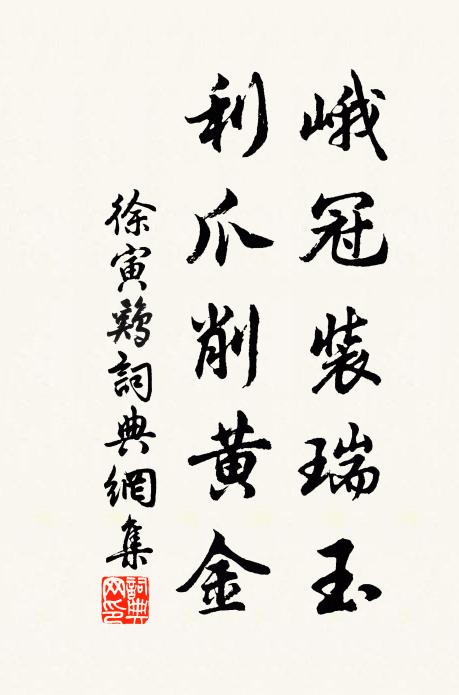 峨冠裝瑞玉
利爪削黃金
徐寅鷄詞典網集
詞典網印